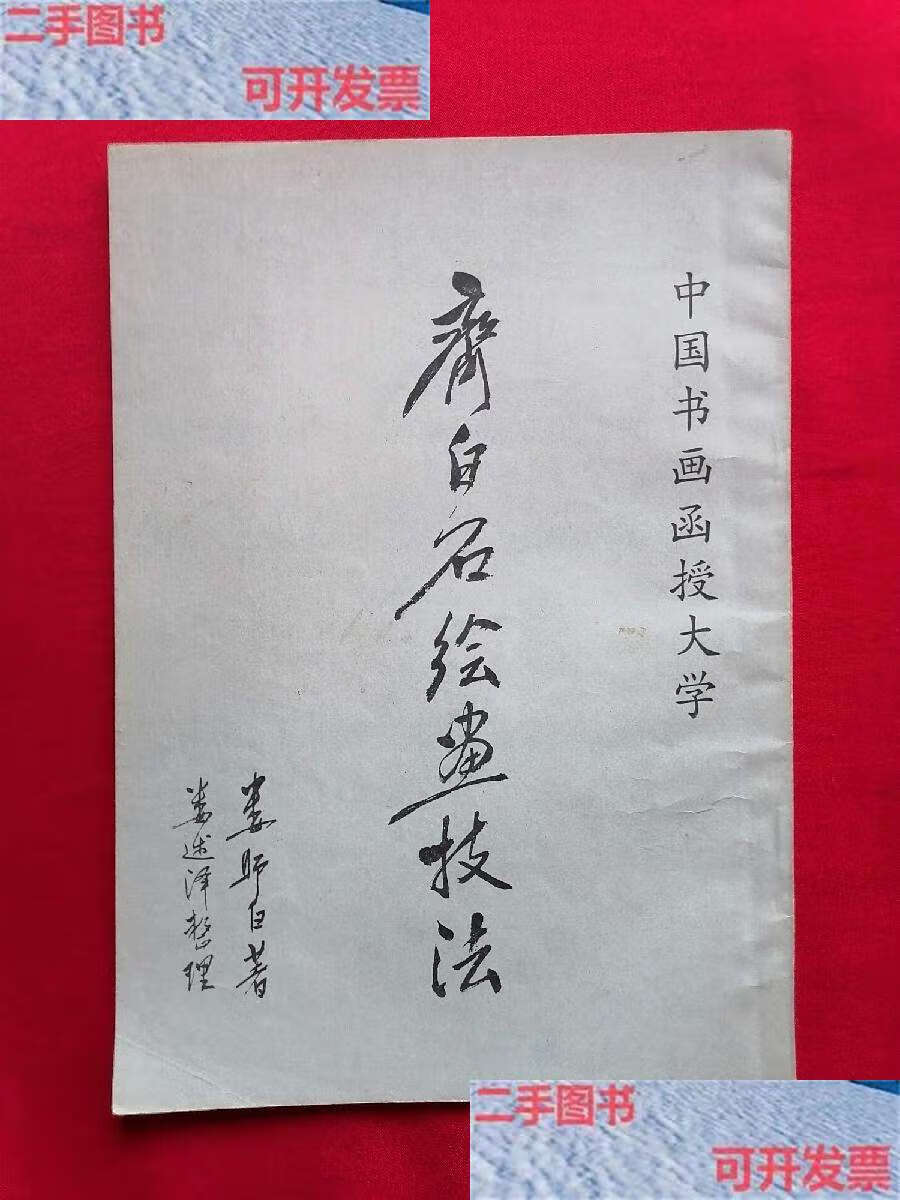 二手图书
可开发票
中国书画函授大学
齊白石绘畫技法
娄师白著
娄述泽整理
二手图书
可开发票